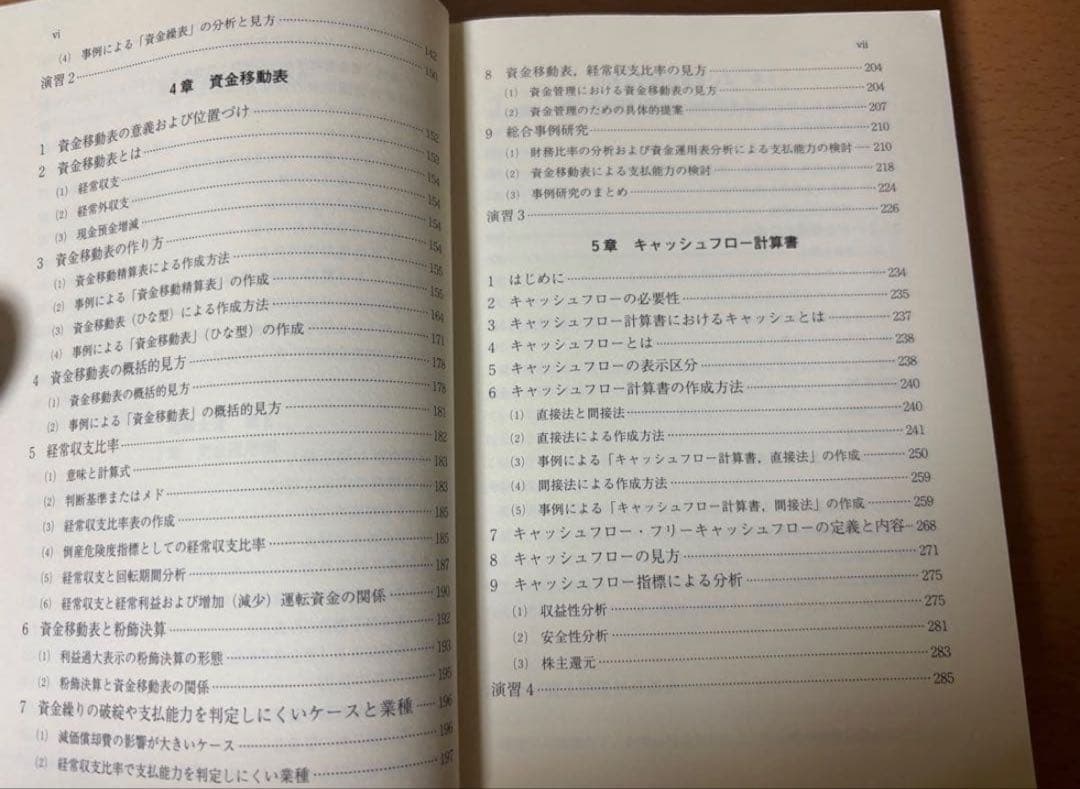 vi
(4) 事例による「資金繰表」の分析と見方 142
演習2 150
4章 資金移動表
1 資金移動表の意義および位置づけ 152
2 資金移動表とは 153
(1) 経常収支 154
(2) 経常外収支 154
(3) 現金預金増減 154
3 資金移動表の作り方 154
(1) 資金移動精算表による作成方法 155
(2) 事例による「資金移動精算表」の作成 155
(3) 資金移動表(ひな型)による作成方法 164
(4) 事例による「資金移動表」(ひな型)の作成 171
4 資金移動表の概括的見方 178
(1) 資金移動表の概括的見方 178
(2) 事例による「資金移動表」の概括的見方 181
5 経常収支比率 182
(1) 意味と計算式 183
(2) 判断基準またはメド 183
(3) 経常収支比率表の作成 185
(4) 倒産危険度指標としての経常収支比率 185
(5) 経常収支と回転期間分析 187
(6) 経常収支と経常利益および増加(減少)運転資金の関係 190
6 資金移動表と粉飾決算 192
(1) 利益過大表示の粉飾決算の形態 193
(2) 粉飾決算と資金移動表の関係 195
7 資金繰りの破綻や支払能力を判定しにくいケースと業種 196
(1) 減価償却費の影響が大きいケース 196
(2) 経常収支比率で支払能力を判定しにくい業種 197
vii
8 資金移動表,経常収支比率の見方 204
(1) 資金管理における資金移動表の見方 204
(2) 資金管理のための具体的提案 207
9 総合事例研究 210
(1) 財務比率の分析および資金運用表分析による支払能力の検討 210
(2) 資金移動表による支払能力の検討 218
(3) 事例研究のまとめ 224
演習3 226
5章 キャッシュフロー計算書
1 はじめに 234
2 キャッシュフローの必要性 235
3 キャッシュフロー計算書におけるキャッシュとは 237
4 キャッシュフローとは 238
5 キャッシュフローの表示区分 238
6 キャッシュフロー計算書の作成方法 240
(1) 直接法と間接法 240
(2) 直接法による作成方法 241
(3) 事例による「キャッシュフロー計算書,直接法」の作成 250
(4) 間接法による作成方法 259
(5) 事例による「キャッシュフロー計算書,間接法」の作成 259
7 キャッシュフロー・フリーキャッシュフローの定義と内容 268
8 キャッシュフローの見方 271
9 キャッシュフロー指標による分析 275
(1) 収益性分析 275
(2) 安全性分析 281
(3) 株主還元 283
演習4 285